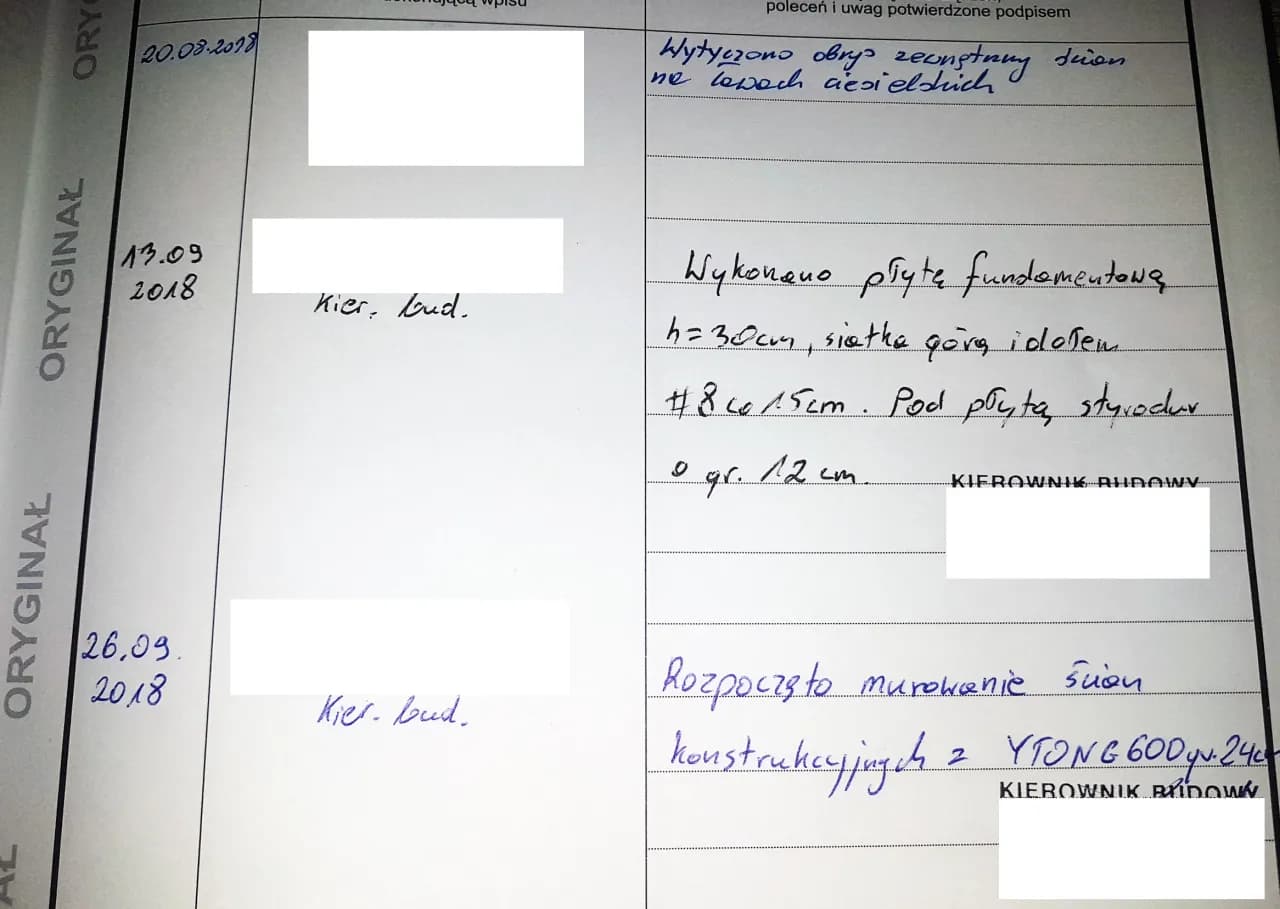 wpisu
poleceń i uwag potwierdzone podpisem
ORYGINAŁ
ORYGINAŁ
20.08.2018
Wytyczono obrys zewnętrzny ścian
na ławach ciesielskich
13.09
2018
Kier. bud.
Wykonano płytę fundamentową
h=30cm, siatka górą i dołem
#8 co 15cm. Pod płytą styrodur
o gr. 12 cm.
KIEROWNIK BUDOWY
26.09.
2018
Kier. bud.
Rozpoczęto murowanie ścian
konstrukcyjnych z YTONG 600 gr. 24c
KIEROWNIK BUDOWY